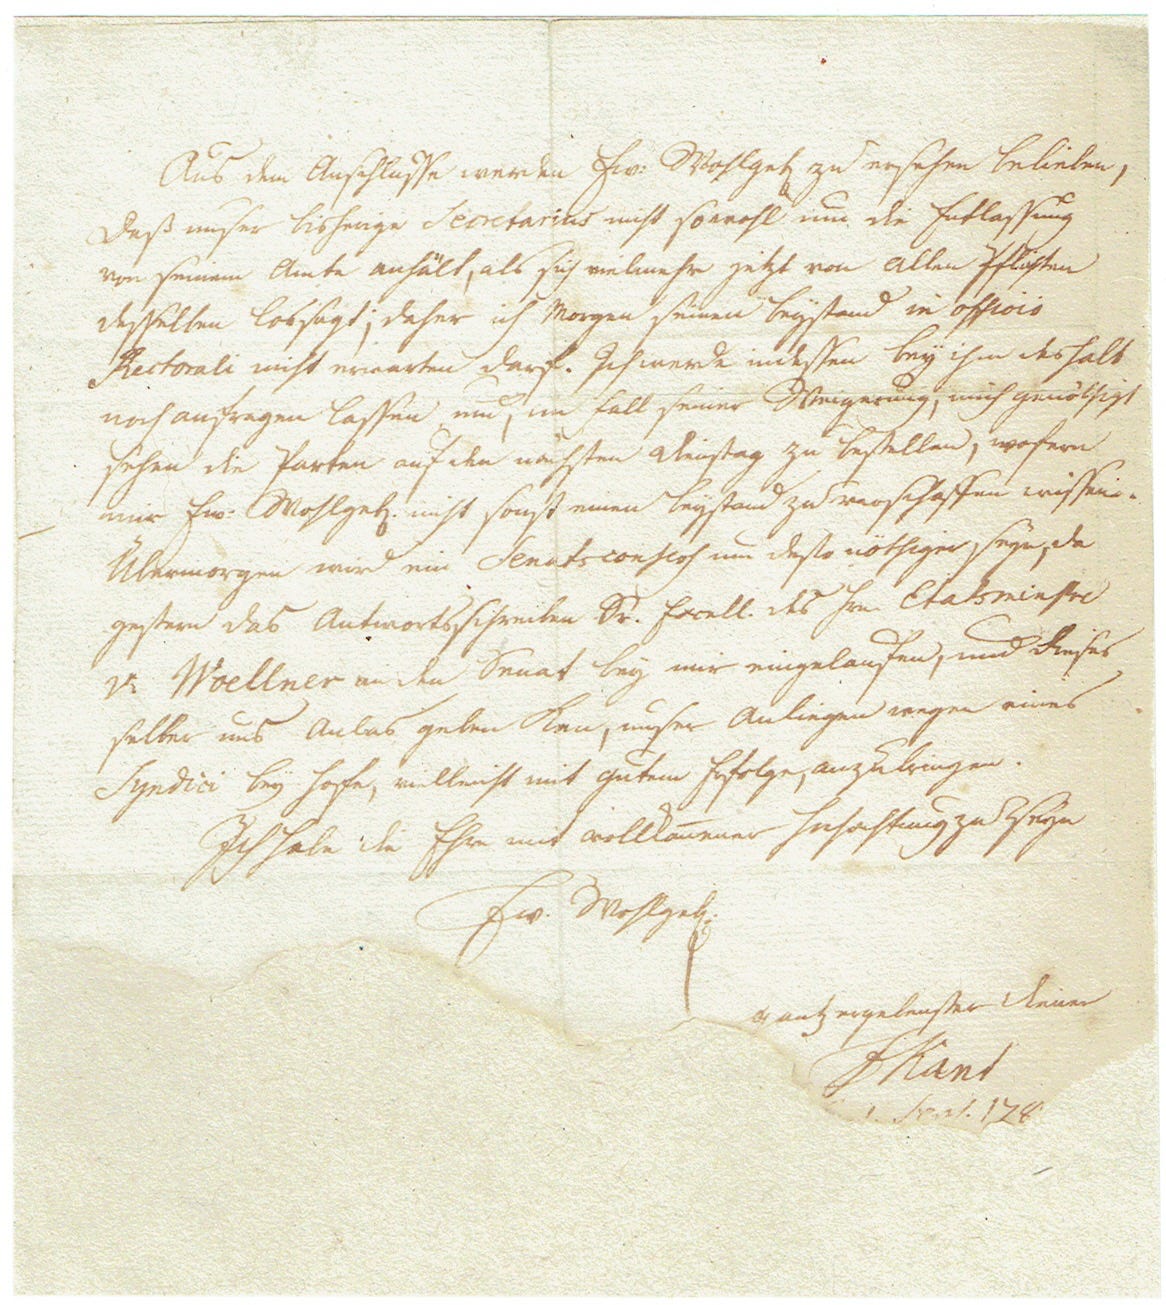 Aus dem Anschlusse werden Ew: Wohlgeb. zu ersehen belieben,
daß unser bisherige Secretarius nicht sowohl um die Entlassung
von seinem Amte anhält, als sich vielmehr jetzt von allen Pflichten
desselben lossagt; daher ich Morgen seinen Beystand in officio
Rectorali nicht erwarten darf. Ich werde indessen bey ihm deshalb
noch anfragen lassen und, im Fall seiner Weigerung, mich genöthigt
sehen die Parten auf den nächsten Dienstag zu bestellen, wofern
mir Ew: Wohlgeb. nicht sonst einen Beystand zu verschaffen wissen.
Übermorgen wird ein Senats um desto nöthiger seyn, da
gestern das Antwortsschreiben Sr. Excell. des Hrn. Etatsministre
v. Woellner an den Senat bey mir eingelaufen, und dieses
selber uns Anlas geben kan, unser Anliegen wegen eines
Syndici bey Hofe, vielleicht mit gutem Erfolge, anzubringen.
Ich habe die Ehre mit vollkomener Hochachtung zu seyn
Ew. Wohlgeb.
gantz ergebenster Diener
I Kant
Sept. 178